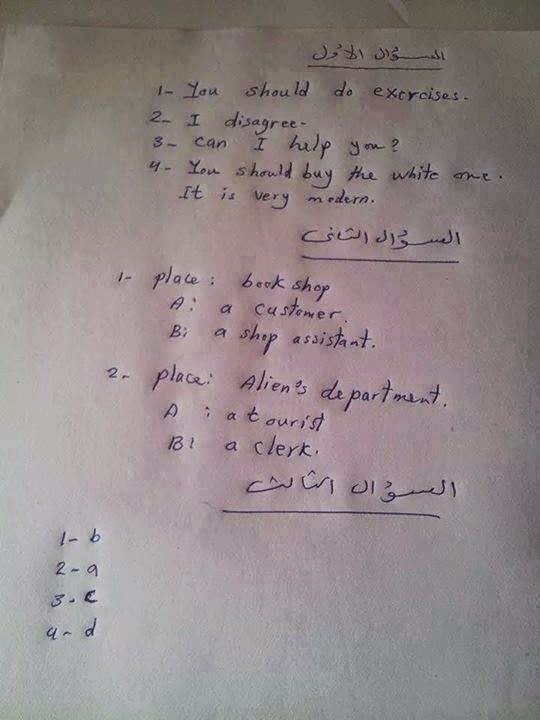 السؤال الأول
1- You should do exercises.
2- I disagree-
3- can I help you?
4- You should buy the white one.
It is very modern.
السؤال الثانى
1- place: book shop
A: a customer.
B: a shop assistant.
2- place: Alien's department.
A : a tourist
B: a clerk.
السؤال الثالث
1- b
2- a
3- c
4- d